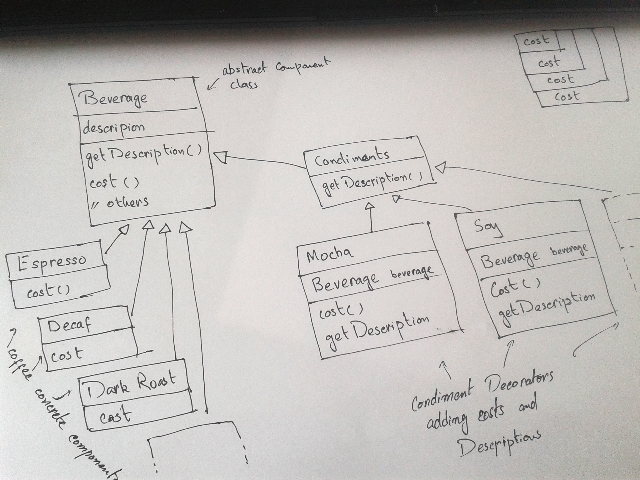 abstract Component
class
Beverage
descripion
getDescription()
cost()
" others
Condiments
getDescription()
cost
cost
cost
cost
Espresso
cost()
Decaf
cost
Dark Roast
cost
coffee concrete components
Mocha
Beverage beverage
cost()
getDescription
Soy
Beverage beverage
Cost()
getDescription
Condiment Decorators
adding costs and
Descriptions